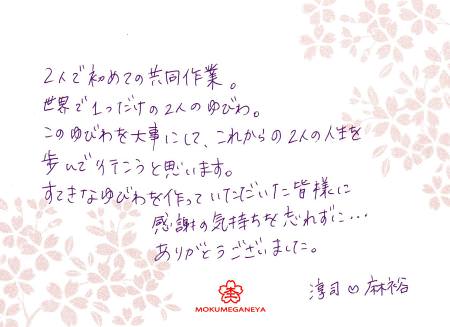 2人で初めての共同作業。
世界で1つだけの2人のゆびわ。
このゆびわを大事にして、これからの2人の人生を
歩んで行こうと思います。
すてきなゆびわを作っていただいた皆様に
感謝の気持ちを忘れずに…
ありがとうございました。
淳司♡麻裕
MOKUMEGANEYA